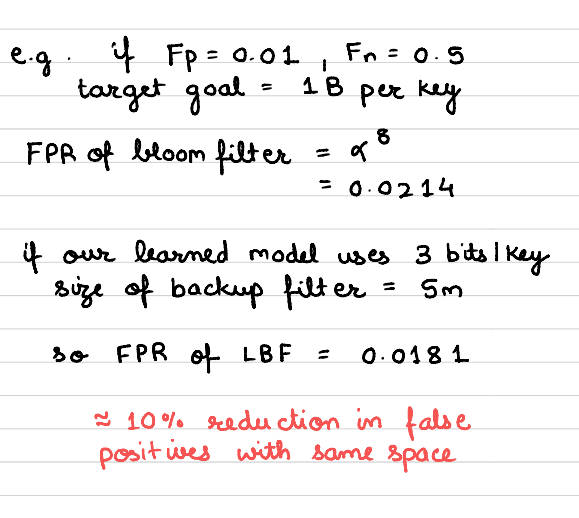 e.g. if Fp = 0.01, Fn = 0.5
target goal = 1B per key
FPR of bloom filter = α^8
= 0.0214
if our learned model uses 3 bits | key
size of backup filter = 5m
so FPR of LBF = 0.0181
≈ 10% reduction in false
positives with same space